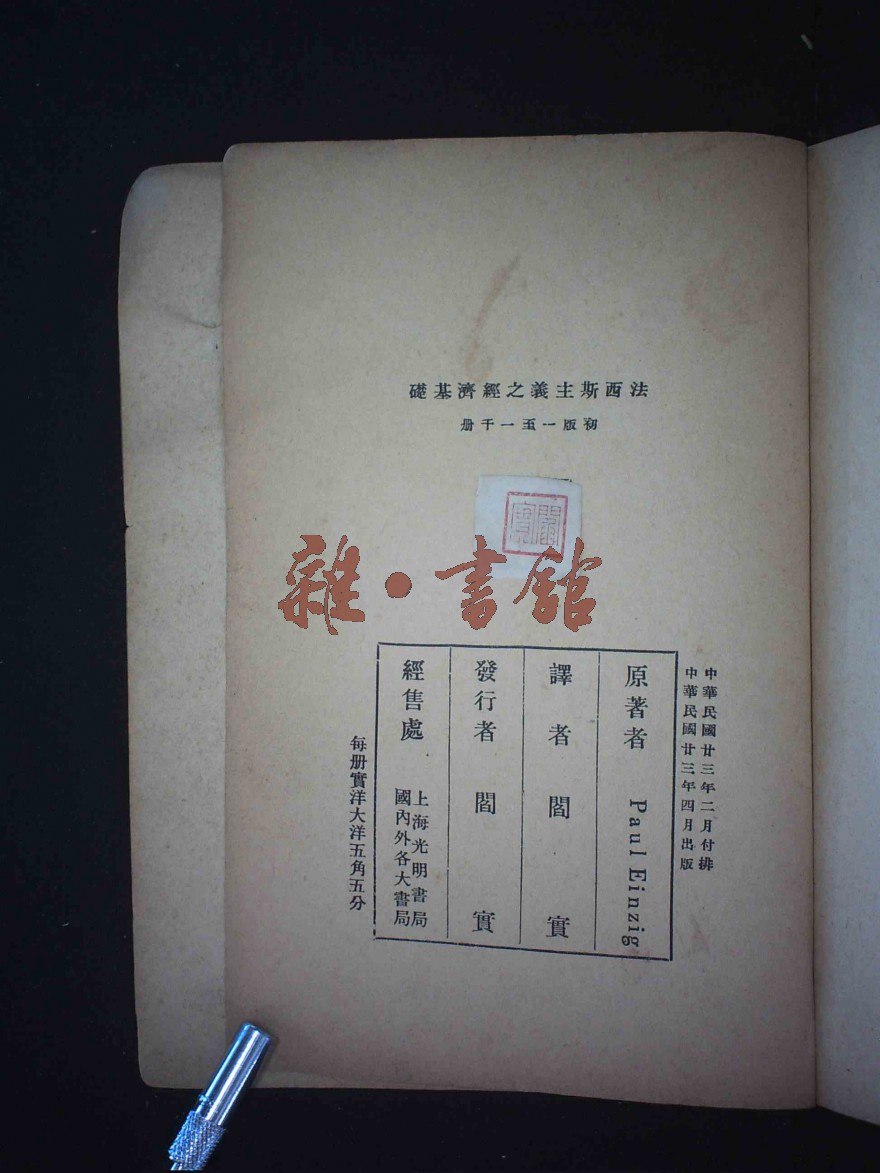 法西斯主義之經濟基礎
初版一至一千册
閻實
雜·書館
中華民國廿三年二月付排
中華民國廿三年四月出版
原著者 Paul Einzig
譯者 閻實
發行者 閻實
經售處 上海光明書局
國內外各大書局
每册實洋大洋五角五分